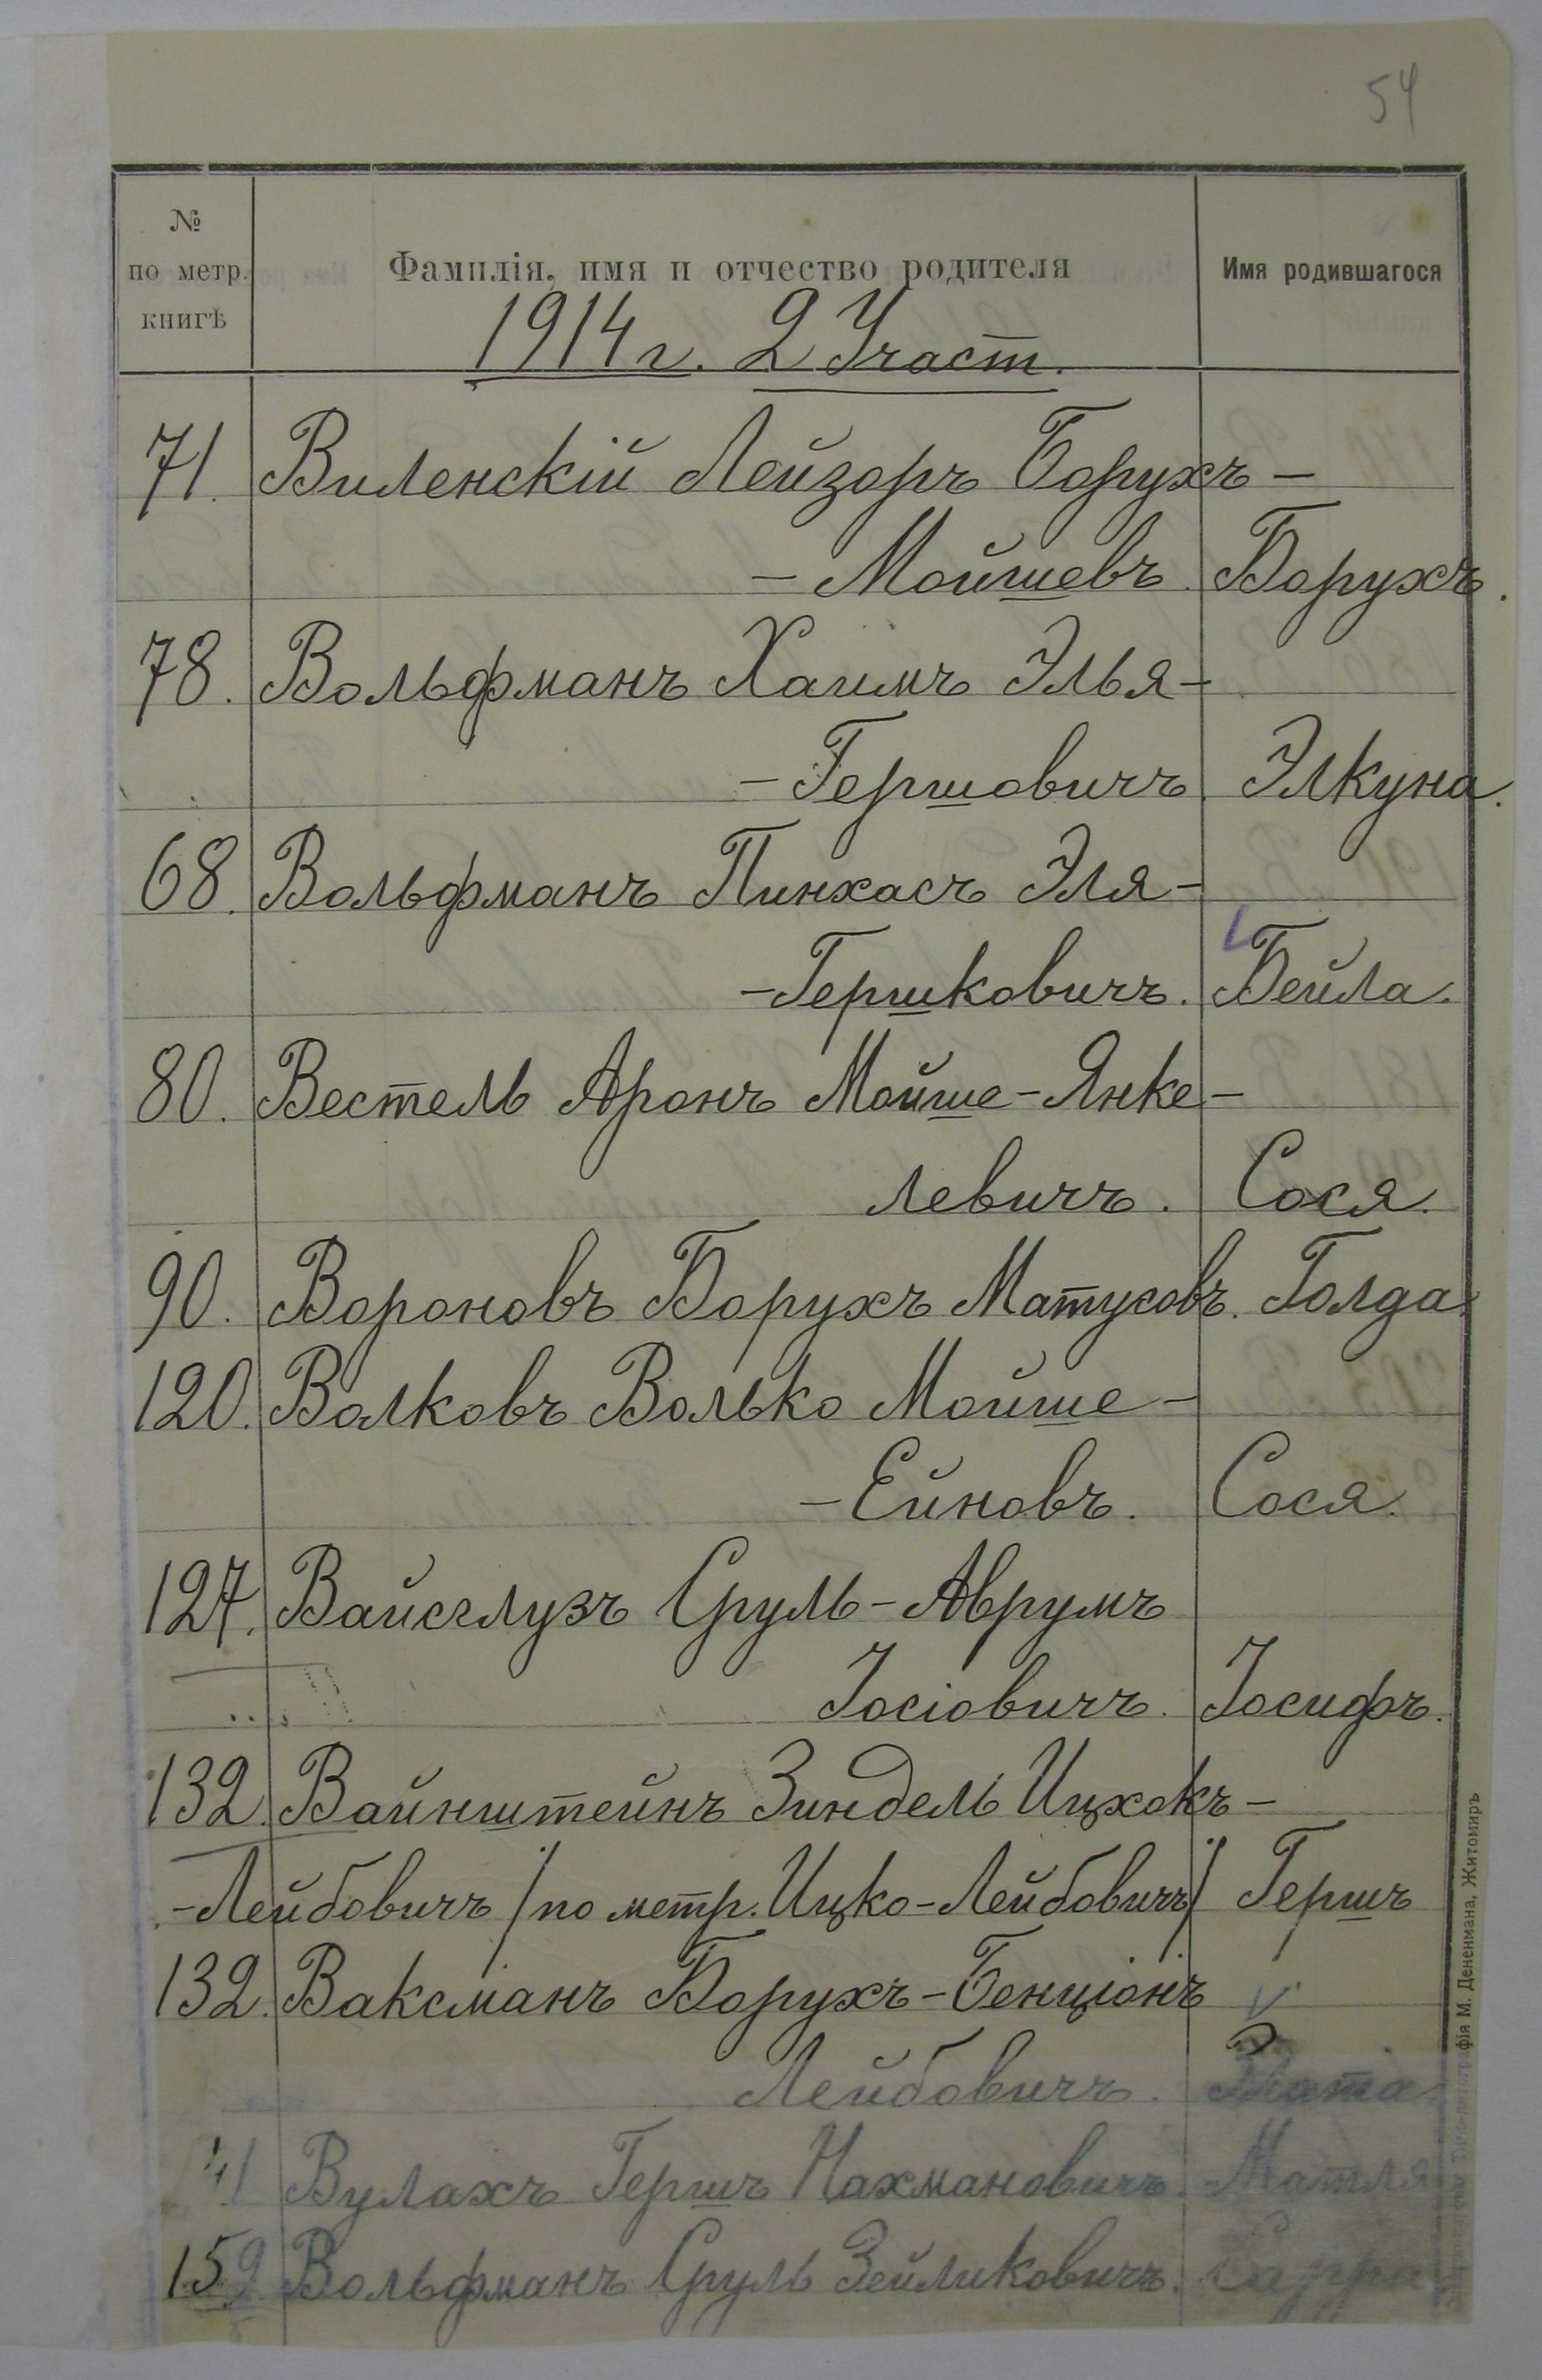 54
№ по метр. книгѣ
Фамилія, имя и отчество родителя
Имя родившагося
1914 г. 2 Участ.
71. Виленскій Лейзоръ Борухъ-
-Мойшевъ. Борухъ.
78. Вольфманъ Хаимъ Элья-
-Гершовичъ. Элкуна.
68. Вольфманъ Пинхасъ Эля-
-Гершковичъ. Бейла.
80. Вестель Аронъ Мойше-Янке-
левичъ. Сося.
90. Вороновъ Борухъ Матусовъ. Голда.
120. Волковъ Волько Мойше-
-Ейновъ. Сося.
127. Вайсглузъ Сруль-Аврумъ
Іосіовичъ. Іосифъ.
132. Вайнштейнъ Зиндель Ицхокъ-
-Лейбовичъ /по метр. Ицко-Лейбовичъ/ Гершъ
132. Ваксманъ Борухъ-Бенціонъ
Лейбовичъ.
Вулахъ Гершъ Нахмановичъ. Матля
159 Вольфманъ Сруль Зейликовичъ. Сарра
фія М. Дененмана, Житомиръ